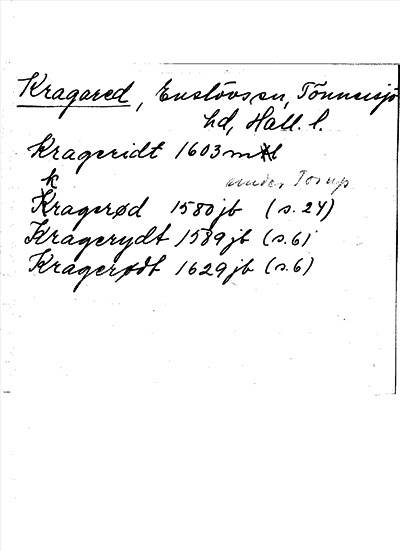 Kragared, Enslövs sn, Tönnersjö
hd, Hall. l.
Krageridt 1603 mtl
k
under Torup
Kragerød 1580 jb (s. 24)
Kragerydt 1589 jb (s. 6)
Kragerødt 1629 jb (s. 6)